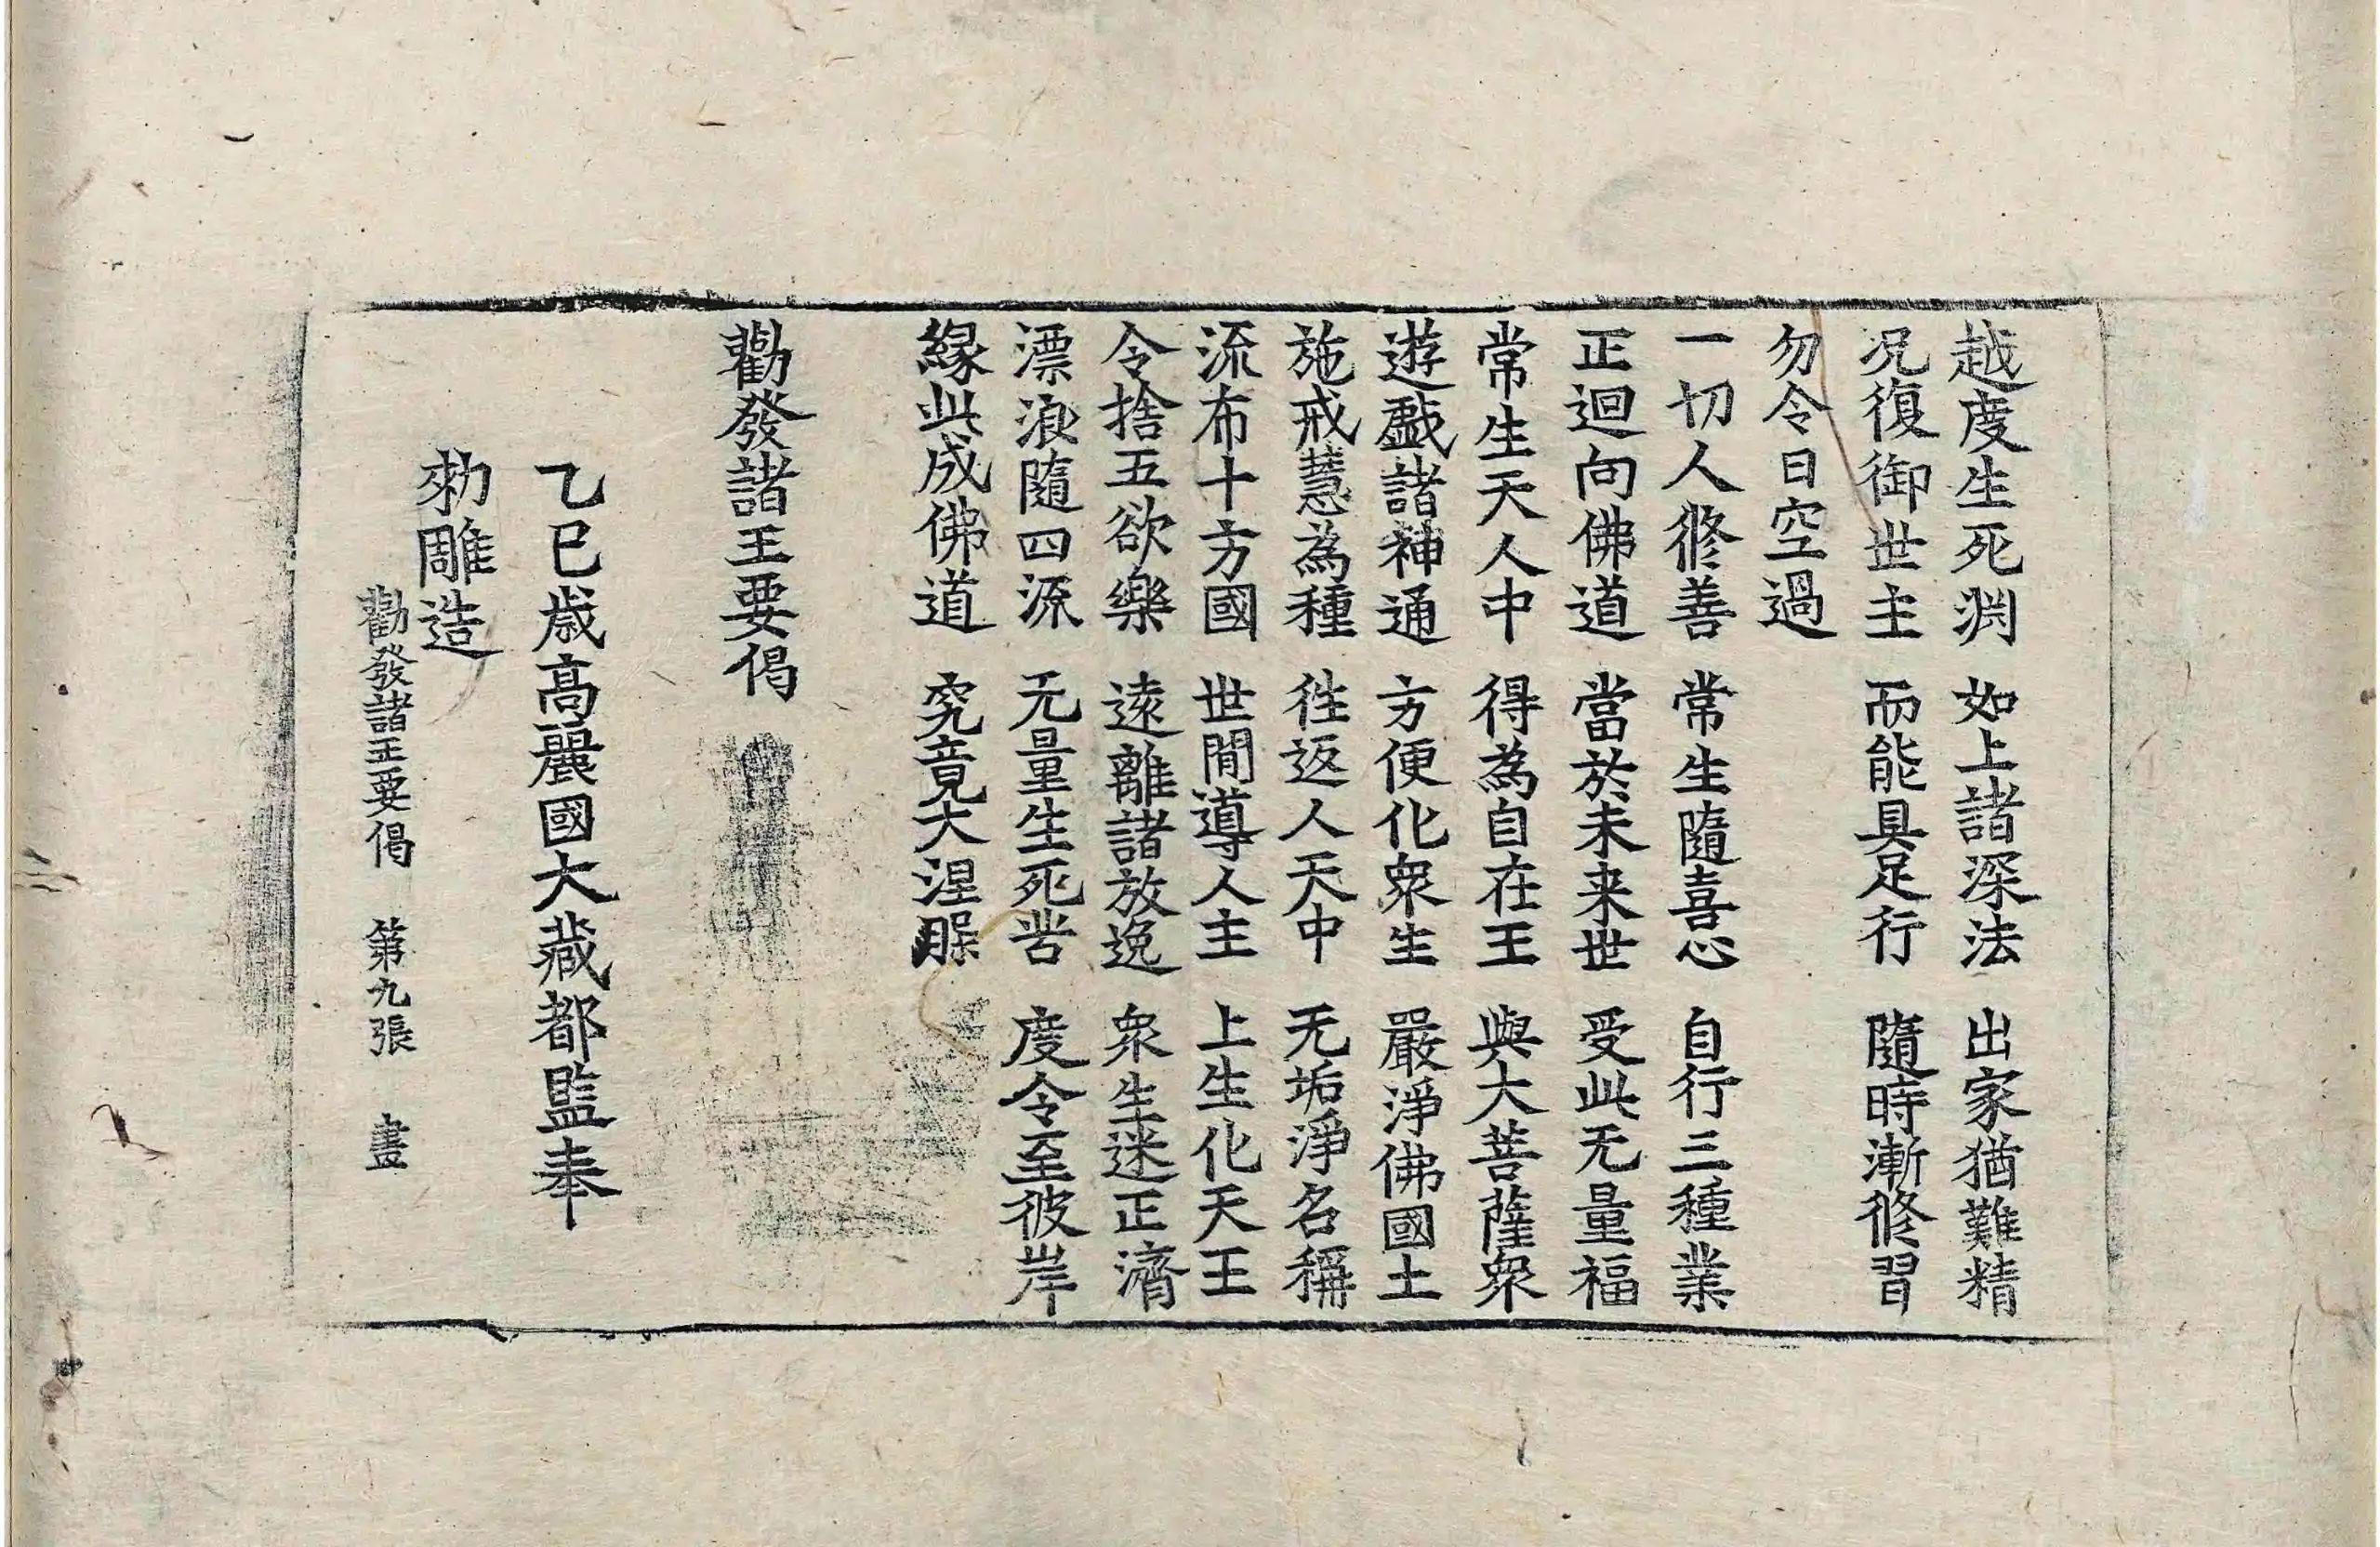 越度生死渊 如上諸深法 出家猶難精
况復御世主 而能具足行 隨時漸修習
勿令日空過
一切人修善 常生隨喜心 自行三種業
正迴向佛道 當於未来世 受此无量福
常生天人中 得為自在王 與大菩薩衆
遊戯諸神通 方便化衆生 嚴淨佛國土
施戒慧為種 往返人天中 无垢淨名稱
流布十方國 世間導人主 上生化天王
令捨五欲樂 遠離諸放逸 衆生迷正濟
漂浪隨四源 无量生死苦 度令至彼岸
緣此成佛道 究竟大涅槃
勸發諸王要偈
乙巳歲高麗國大藏都監奉
勑雕造
勸發諸王要偈 第九張 畫